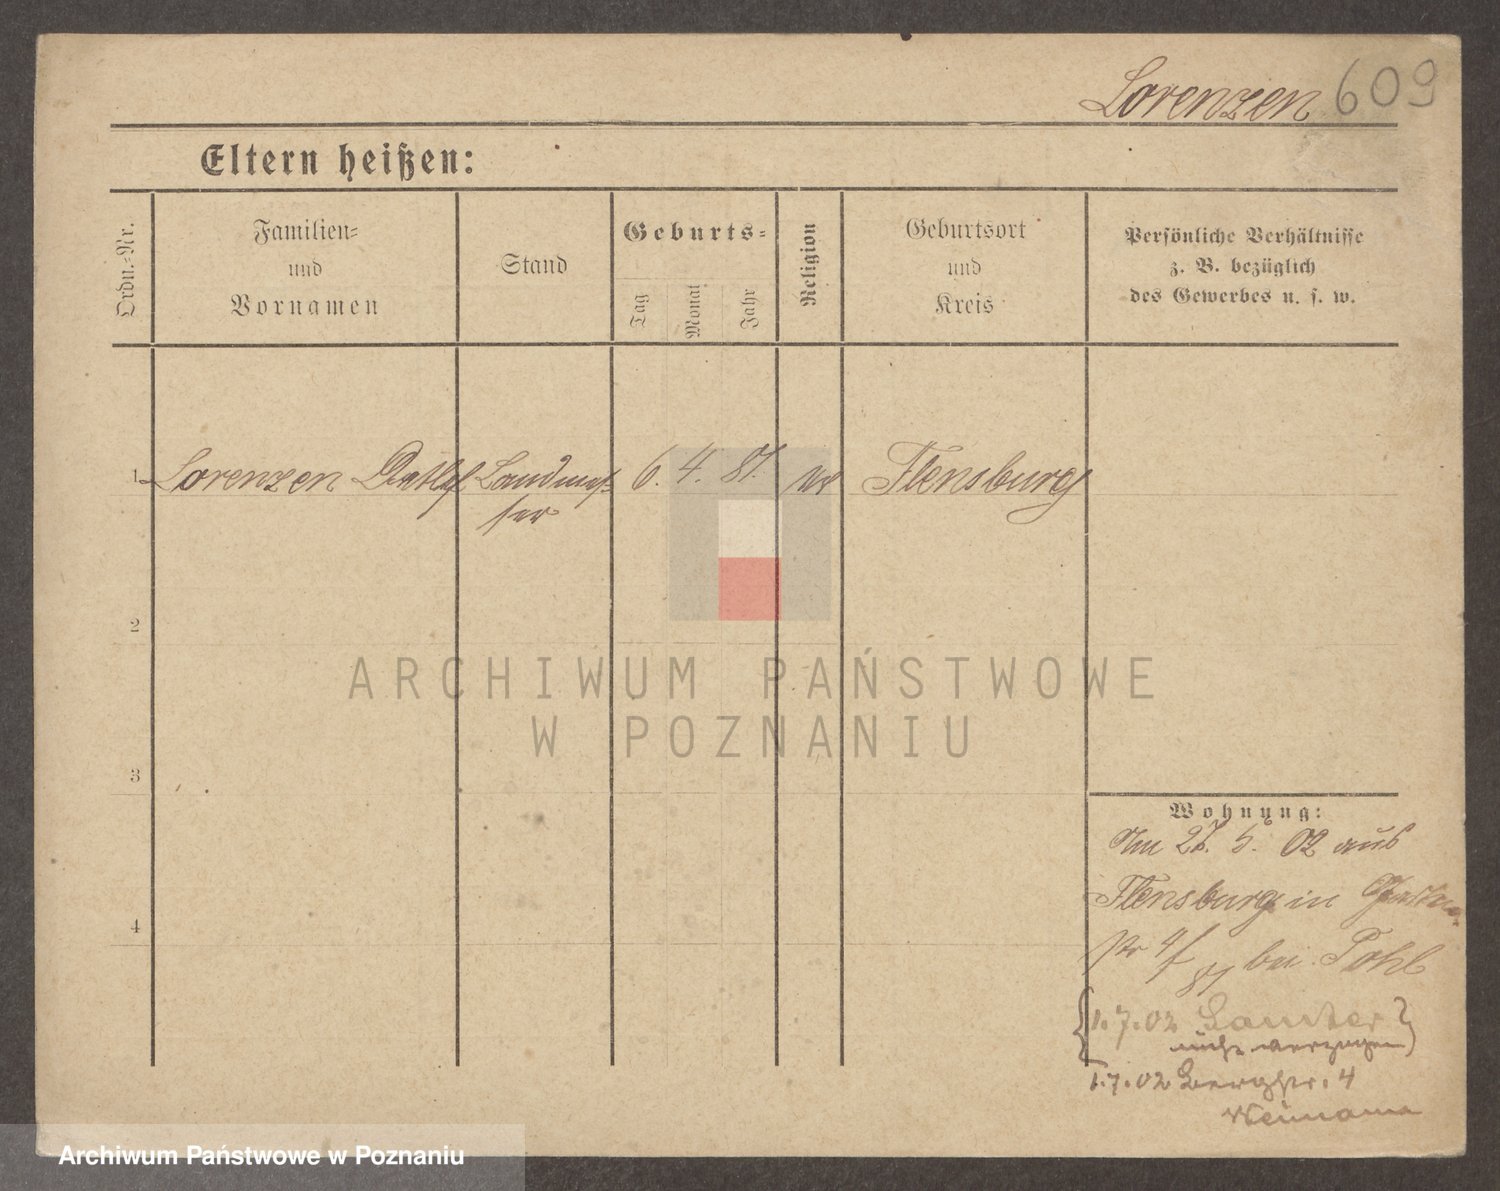 Lorenzen 609
Eltern heißen:
Ordn.-Nr.
Familien-
und
Vornamen
Stand
Geburts-
Tag
Monat
Jahr
Religion
Geburtsort
und
Kreis
Persönliche Verhältnisse
z. B. bezüglich
des Gewerbes u. s. w.
1 Lorenzen Detlef Landmes- 6. 4. 81. ev Flensburg
ser
2
3
4
Wohnung:
Am 27. 5. 02 aus
Flensburg in
bei Pohl
1.7.02
nicht verzogen
1.7.02 Bergstr. 4
ARCHIWUM PAŃSTWOWE
W POZNANIU
Archiwum Państwowe w Poznaniu